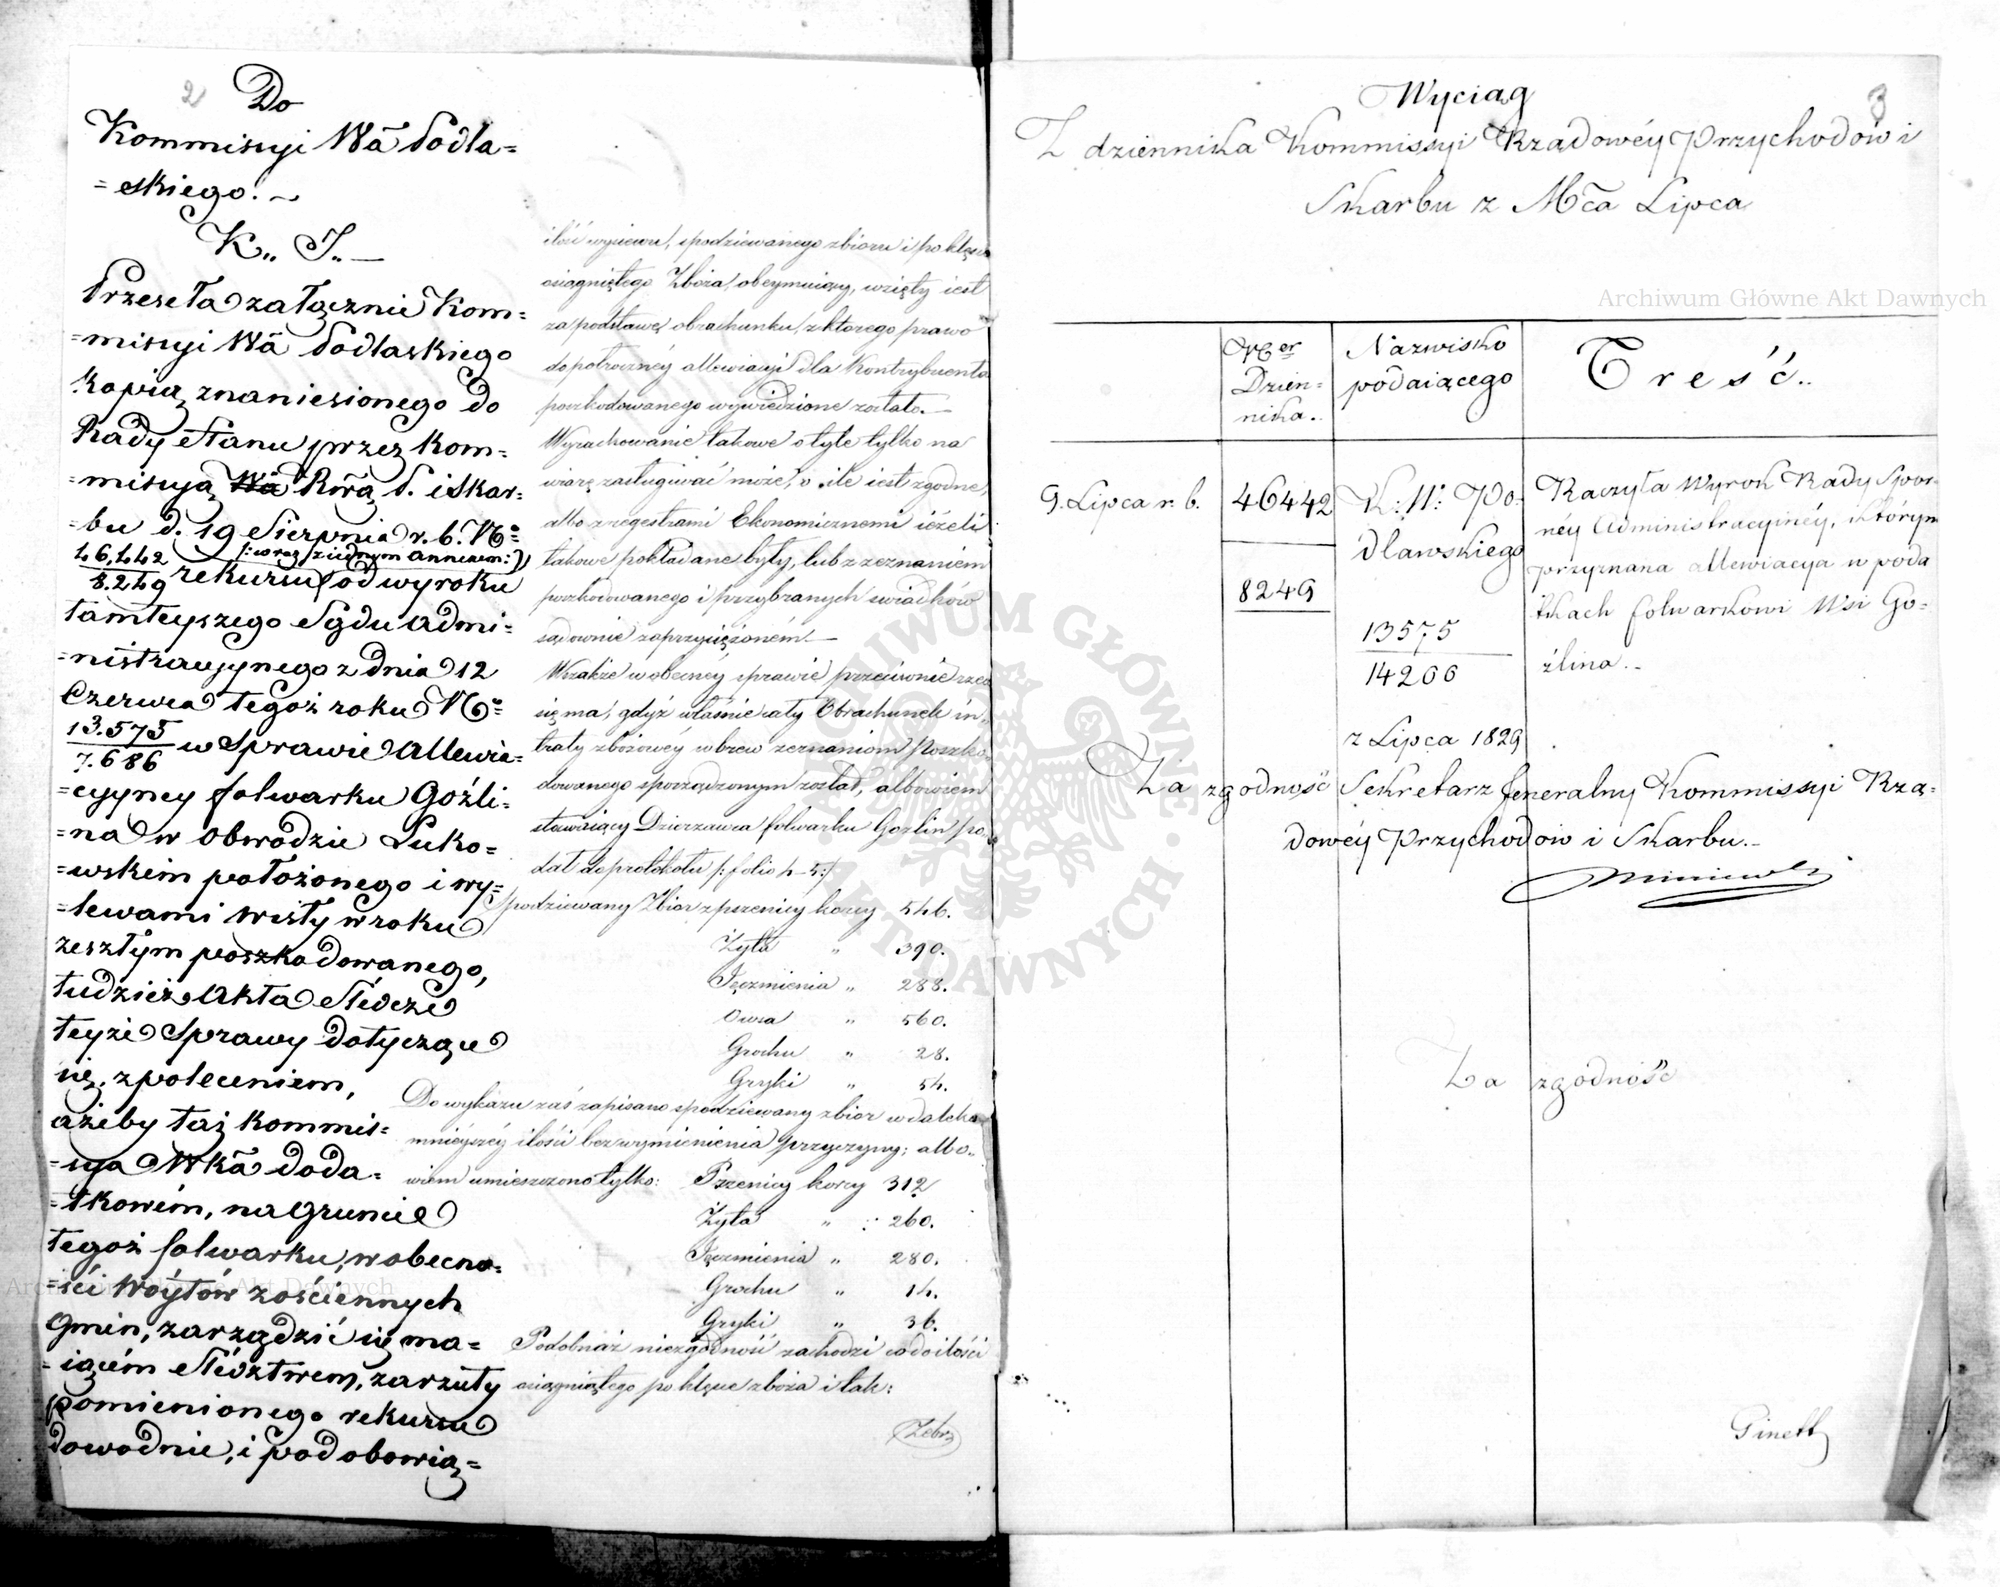 2
Do
Kommissyi Wa Podla=
=skiego. ~
K.. J.. —
Przeseła załącznie Kom=
=missyi Wa Podlaskiego
kopią znaniesionego do
Rady Stanu przez Kom=
=missyą Wa Rwą P. i Skar=
=bu d. 19 Sierpnia r. b. No
46,442
8.249
/:wraz z iednym annexem:/
rekursu od wyroku
tamteyszego Sądu admi=
=nistracyjnego z dnia 12
Czerwca tegoż roku No
13.575
7.686
w sprawie allewia=
=cyyney folwarku Goźli=
=na w Obwodzie Łuko=
=wskim położonego i wy=
=lewami Wisły w roku
zeszłym poszkodowanego,
tudzież Akta Śledcze
teyże Sprawy dotyczące
się, z poleceniem,
ażeby taż Kommis=
=sya Wka doda=
=tkowém, na gruncie
tegoż folwarku, w obecno=
=ści Wóytów zościennych
Gmin, zarządzić się ma=
=iącém Śledztwem, zarzuty
pomienionego rekursu
dowodnie, i pod obowią=
ilość wysiewu, spodziewanego zbioru i po klęsce
osiągniętego Zboża, obeymuiący, wzięty iest
za podstawę obrachunku, z ktorego prawo
do potroczney allewiacyi dla Kontrybuenta
poszkodowanego wywiedzione zostało. —
Wyrachowanie takowe o tyle tylko na
wiarę zasługiwać może, o ile iest zgodne,
albo z regestrami Ekonomicznemi ieżeli
takowe pokładane były, lub z zeznaniem
poszkodowanego i przybranych swiadków
sądownie zaprzysiężoném. —
Wszakże w obecnéy sprawie przeciwnie rzecz
się ma, gdyż właśnie cały Obrachunek in=
traty zbożowéy wbrew zeznaniom Poszko=
dowanego sporządzonym został, albowiem
stawaiący Dzierzawca folwarku Gozlin po=
dał do protokołu /:folio 4-5:/
Spodziewany Zbior z pszenicy korcy 546.
Żyta " 390.
Jęczmienia " 288.
Owsa " 560.
Grochu " 28.
Gryki " 54.
Do wykazu zaś zapisano spodziewany zbior w daleko
mnieyszéy ilości bez wymienienia przyczyny; albo=
wiem umieszczono tylko: Pszenicy korcy 312
Żyta " 260.
Jęczmienia " 280.
Grochu " 14.
Gryki " 36.
Podobnaż niezgodność zachodzi co do ilości
osiągniętego po klęsce zboża i tak:
Żebr.
3
Wyciąg
Z dziennika Kommissyi Rządowéy Przychodów i
Skarbu z Mca Lipca
Ner
Dzien=
nika.
Nazwisko
podaiącego
Treść..
9. Lipca r. b.
46442
8249
K: W: Po=
dlawskiego
13575
14266
z Lipca 1829
Raczyła Wyrok Rady Spor=
néy Administracyinéy, którym
przyznana allewiacya w poda
tkach folwarkowi Wsi Go=
źlina. -
Za zgodność Sekretarz Jeneralny Kommissyi Rzą=
dowéy Przychodów i Skarbu. -
Za zgodność
Ginett
Archiwum Główne Akt Dawnych
Archiwum Główne Akt Dawnych
ARCHIWUM GŁÓWNE · AKT DAWNYCH ·